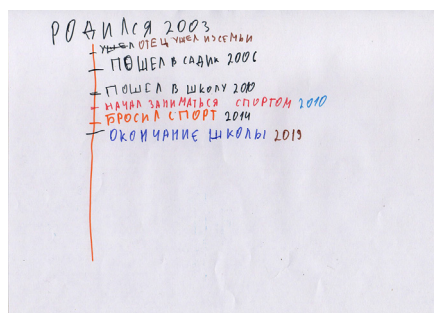 РОДИЛСЯ 2003
УШЕЛ ОТЕЦ УШЕЛ ИЗ СЕМЬИ
ПОШЕЛ В САДИК 2006
ПОШЕЛ В ШКОЛУ 2010
НАЧАЛ ЗАНИМАТЬСЯ СПОРТОМ 2010
БРОСИЛ СПОРТ 2014
ОКОНЧАНИЕ ШКОЛЫ 2019